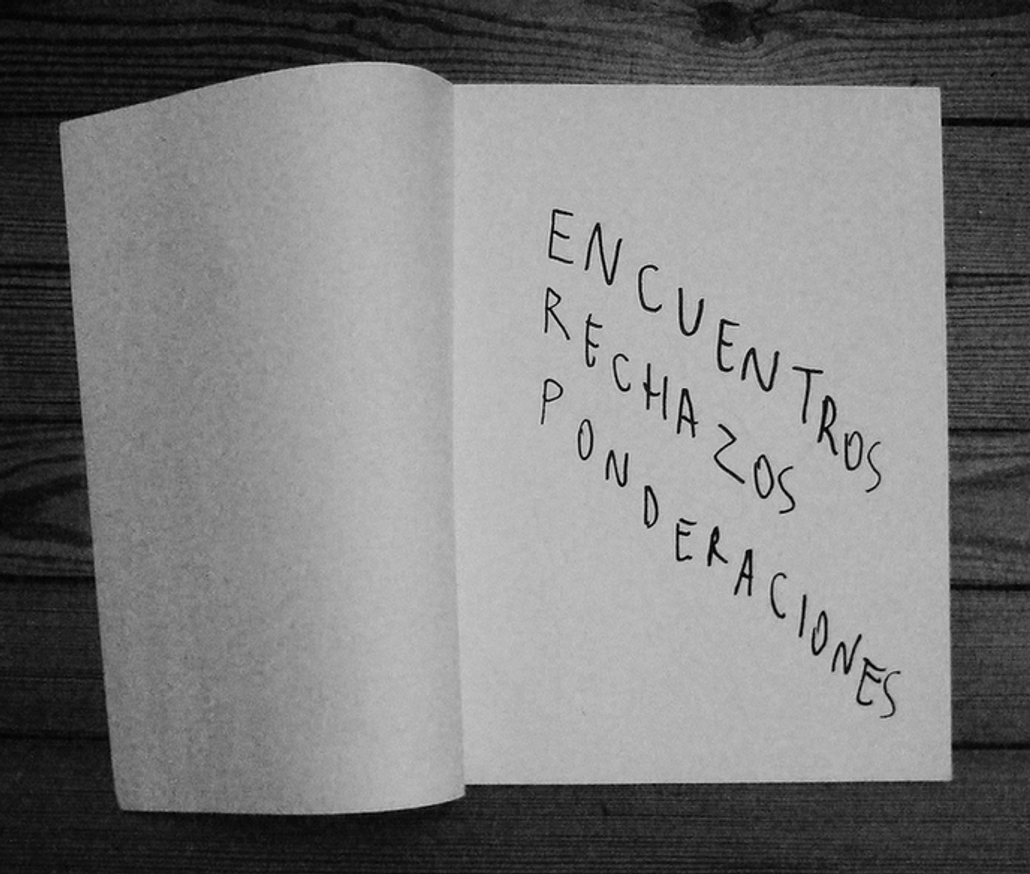 ENCUENTROS
RECHAZOS
PONDERACIONES